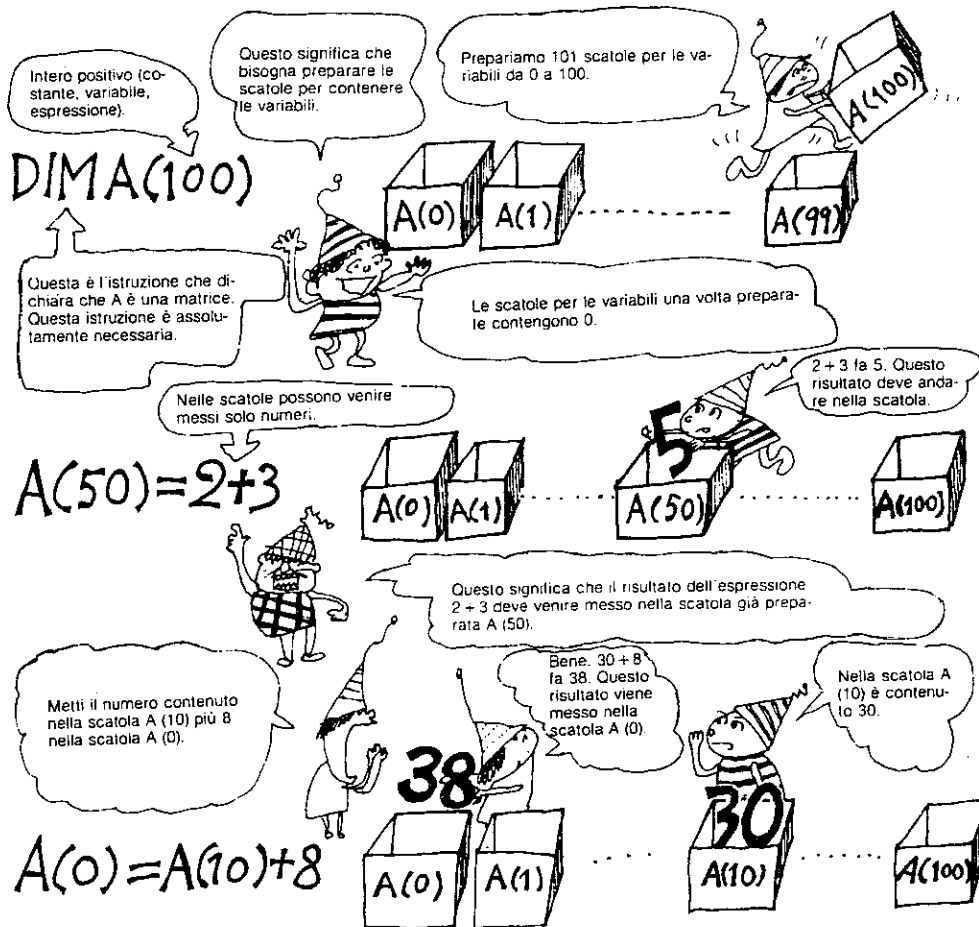 Intero positivo (co-
stante, variabile,
espressione).
Questo significa che
bisogna preparare le
scatole per contenere
le variabili.
Prepariamo 101 scatole per le va-
riabili da 0 a 100.
DIMA(100)
A(0)
A(1)
A(99)
A(100)
Questa è l'istruzione che di-
chiara che A è una matrice.
Questa istruzione è assolu-
tamente necessaria.
Le scatole per le variabili una volta prepara-
le contengono 0.
Nelle scatole possono venire
messi solo numeri.
2 + 3 fa 5. Questo
risultato deve anda-
re nella scatola.
A(50)=2+3
5
A(0)
A(1)
A(50)
A(100)
Questo significa che il risultato dell'espressione
2 + 3 deve venire messo nella scatola già prepa-
rata A (50).
Metti il numero contenuto
nella scatola A (10) più 8
nella scatola A (0).
Bene. 30 + 8
fa 38. Questo
risultato viene
messo nella
scatola A (0).
Nella scatola A
(10) è contenu-
to 30.
38
30
A(0)=A(10)+8
A(0)
A(1)
A(10)
A(100)